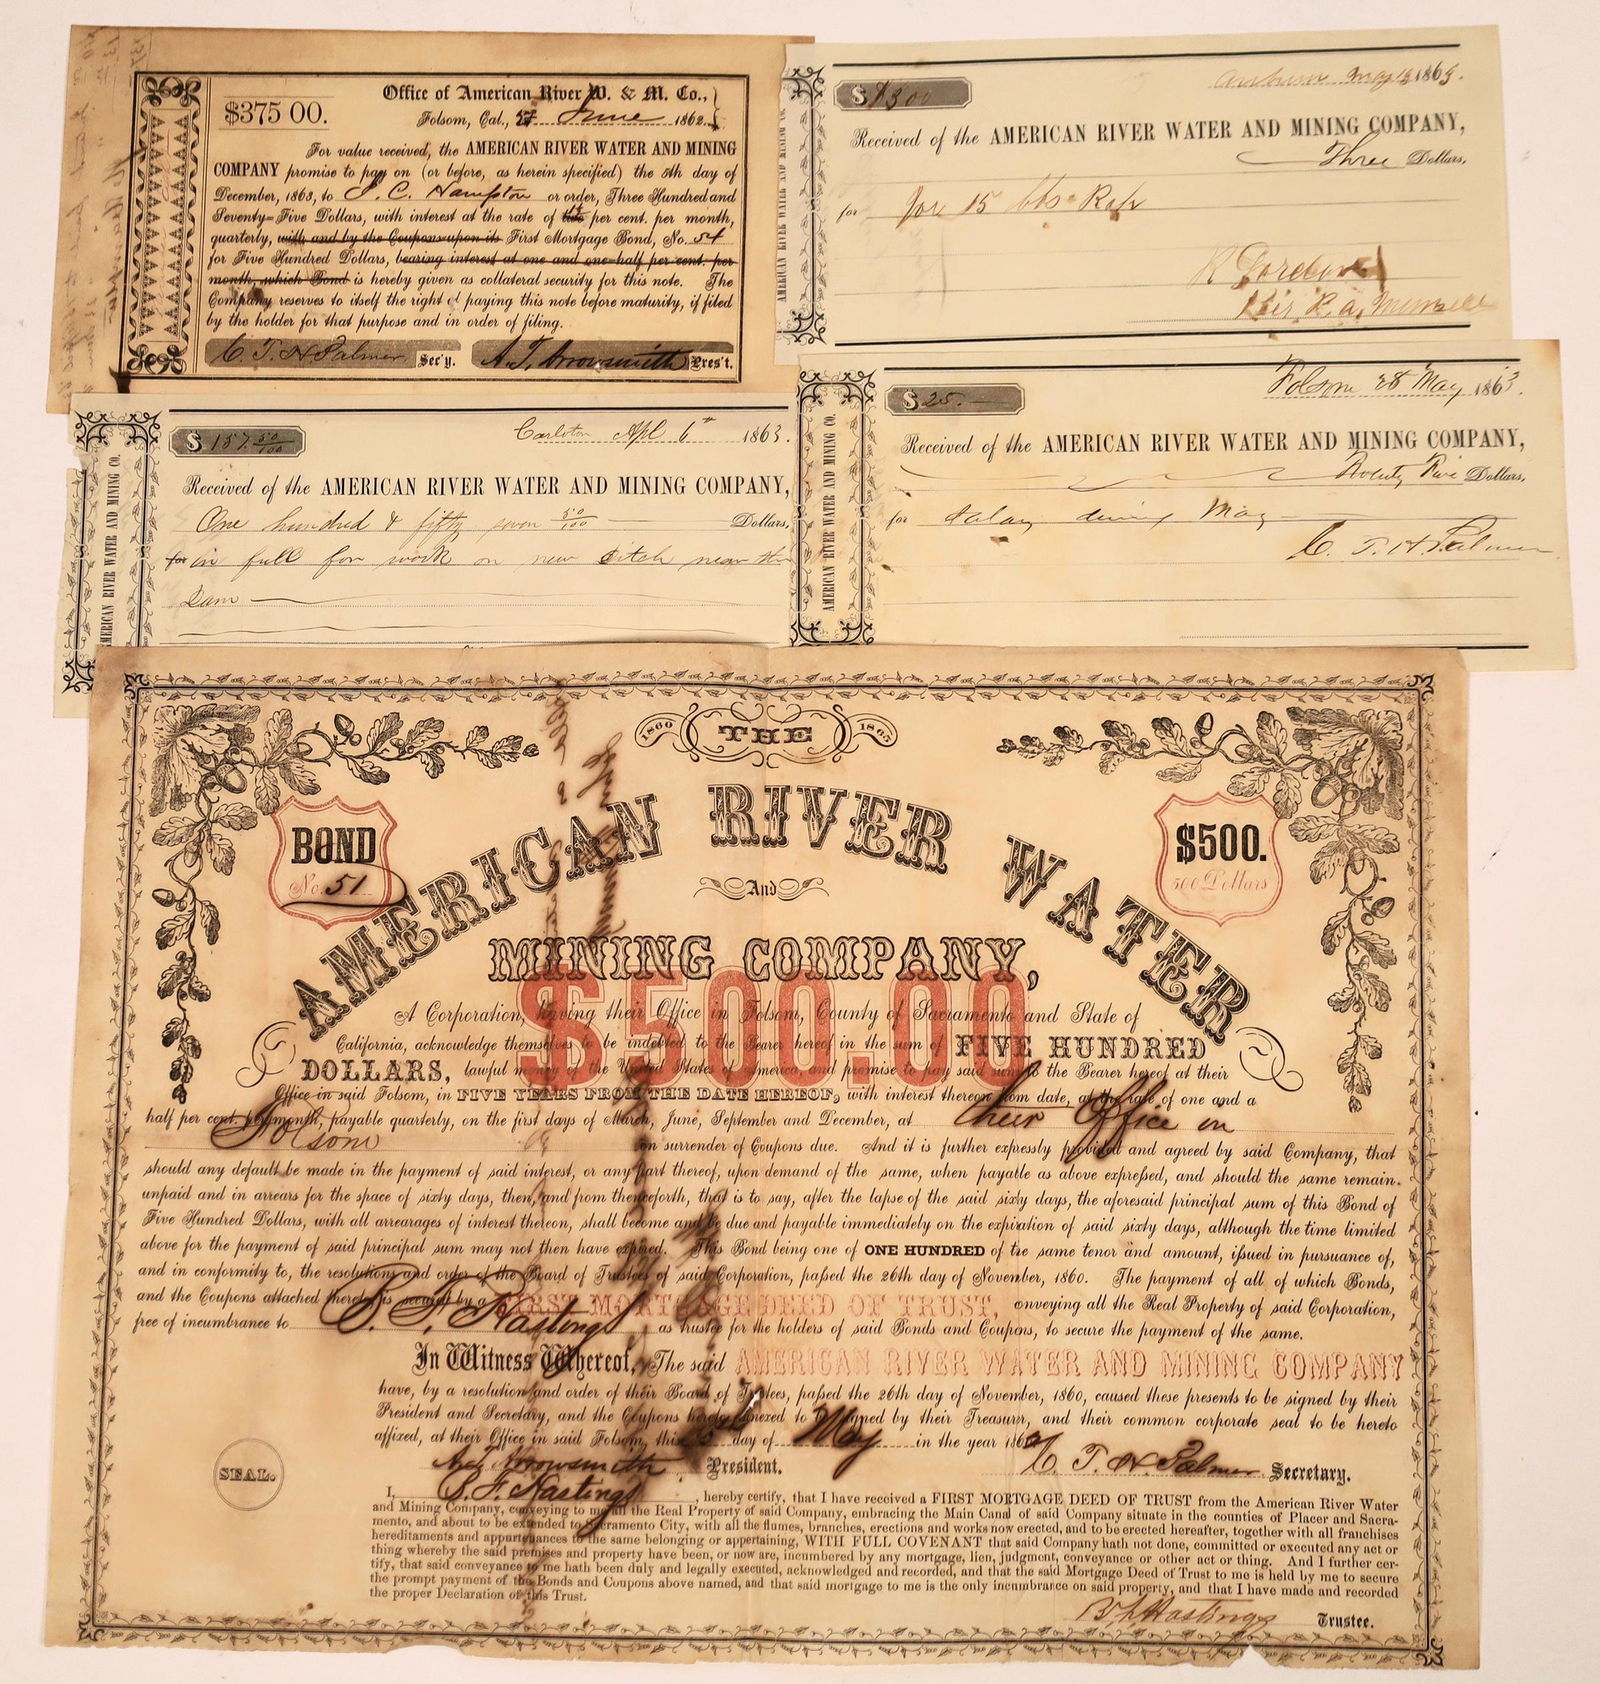 $375 00.
Office of American River W. & M. Co.,
Folsom, Cal., June 1862.
For value received, the AMERICAN RIVER WATER AND MINING
COMPANY promise to pay on (or before, as herein specified) the 5th day of
December, 1863, to J. C. Hampton or order, Three Hundred and
Seventy-Five Dollars, with interest at the rate of per cent. per month,
quarterly, with and by the Coupons upon its First Mortgage Bond, No. 51
for Five Hundred Dollars, bearing interest at one and one-half per cent. per
month, which Bond is hereby given as collateral security for this note. The
Company reserves to itself the right of paying this note before maturity, if filed
by the holder for that purpose and in order of filing.
C. T. H. Palmer Sec'y. A. T. Arrowsmith Pres't.
AMERICAN RIVER WATER AND MINING CO.
$ 3 00
Auburn May 1863.
Received of the AMERICAN RIVER WATER AND MINING COMPANY,
Three Dollars,
for for 15
R Gordon
R. A.
AMERICAN RIVER WATER AND MINING CO.
$ 157 50/100
Carlton Apl 6th 1863.
Received of the AMERICAN RIVER WATER AND MINING COMPANY,
One hundred & fifty seven 50/100 Dollars,
for in full for work on new ditch near the
Dam
AMERICAN RIVER WATER AND MINING CO.
$ 25.
Folsom 28 May 1863.
Received of the AMERICAN RIVER WATER AND MINING COMPANY,
Twenty Five Dollars,
for salary during May
C. T. H. Palmer
1860 THE 1865
BOND
No. 51
$500.
500 Dollars
AMERICAN RIVER WATER
And
MINING COMPANY,
$500.00
A Corporation, having their Office in Folsom, County of Sacramento and State of
California, acknowledge themselves to be indebted to the Bearer hereof in the sum of FIVE HUNDRED
DOLLARS, lawful money of the United States of America, and promise to pay said sum to the Bearer hereof at their
Office in said Folsom, in FIVE YEARS FROM THE DATE HEREOF, with interest thereon from date, at the rate of one and a
half per cent. per month, payable quarterly, on the first days of March, June, September and December, at their Office in
Folsom on surrender of Coupons due. And it is further expressly provided and agreed by said Company, that
should any default be made in the payment of said interest, or any part thereof, upon demand of the same, when payable as above expressed, and should the same remain
unpaid and in arrears for the space of sixty days, then, and from thenceforth, that is to say, after the lapse of the said sixty days, the aforesaid principal sum of this Bond of
Five Hundred Dollars, with all arrearages of interest thereon, shall become and be due and payable immediately on the expiration of said sixty days, although the time limited
above for the payment of said principal sum may not then have expired. This Bond being one of ONE HUNDRED of the same tenor and amount, issued in pursuance of,
and in conformity to, the resolutions and order of the Board of Trustees of said Corporation, passed the 26th day of November, 1860. The payment of all of which Bonds,
and the Coupons attached thereto, is secured by a FIRST MORTGAGE DEED OF TRUST, conveying all the Real Property of said Corporation,
free of incumbrance to B. F. Hastings as trustee for the holders of said Bonds and Coupons, to secure the payment of the same.
In Witness Whereof, The said AMERICAN RIVER WATER AND MINING COMPANY
have, by a resolution and order of their Board of Trustees, passed the 26th day of November, 1860, caused these presents to be signed by their
President and Secretary, and the Coupons hereto annexed to be signed by their Treasurer, and their common corporate seal to be hereto
affixed, at their Office in said Folsom, this day of May in the year 186
Arrowsmith President. C. T. H. Palmer Secretary.
SEAL.
I, B. F. Hastings, hereby certify, that I have received a FIRST MORTGAGE DEED OF TRUST from the American River Water
and Mining Company, conveying to me all the Real Property of said Company, embracing the Main Canal of said Company situate in the counties of Placer and Sacra-
mento, and about to be extended to Sacramento City, with all the flumes, branches, erections and works now erected, and to be erected hereafter, together with all franchises
hereditaments and appurtenances to the same belonging or appertaining, WITH FULL COVENANT that said Company hath not done, committed or executed any act or
thing whereby the said premises and property have been, or now are, incumbered by any mortgage, lien, judgment, conveyance or other act or thing. And I further cer-
tify, that said conveyance to me hath been duly and legally executed, acknowledged and recorded, and that the said Mortgage Deed of Trust to me is held by me to secure
the prompt payment of the Bonds and Coupons above named, and that said mortgage to me is the only incumbrance on said property, and that I have made and recorded
the proper Declaration of this Trust.
B F Hastings Trustee.